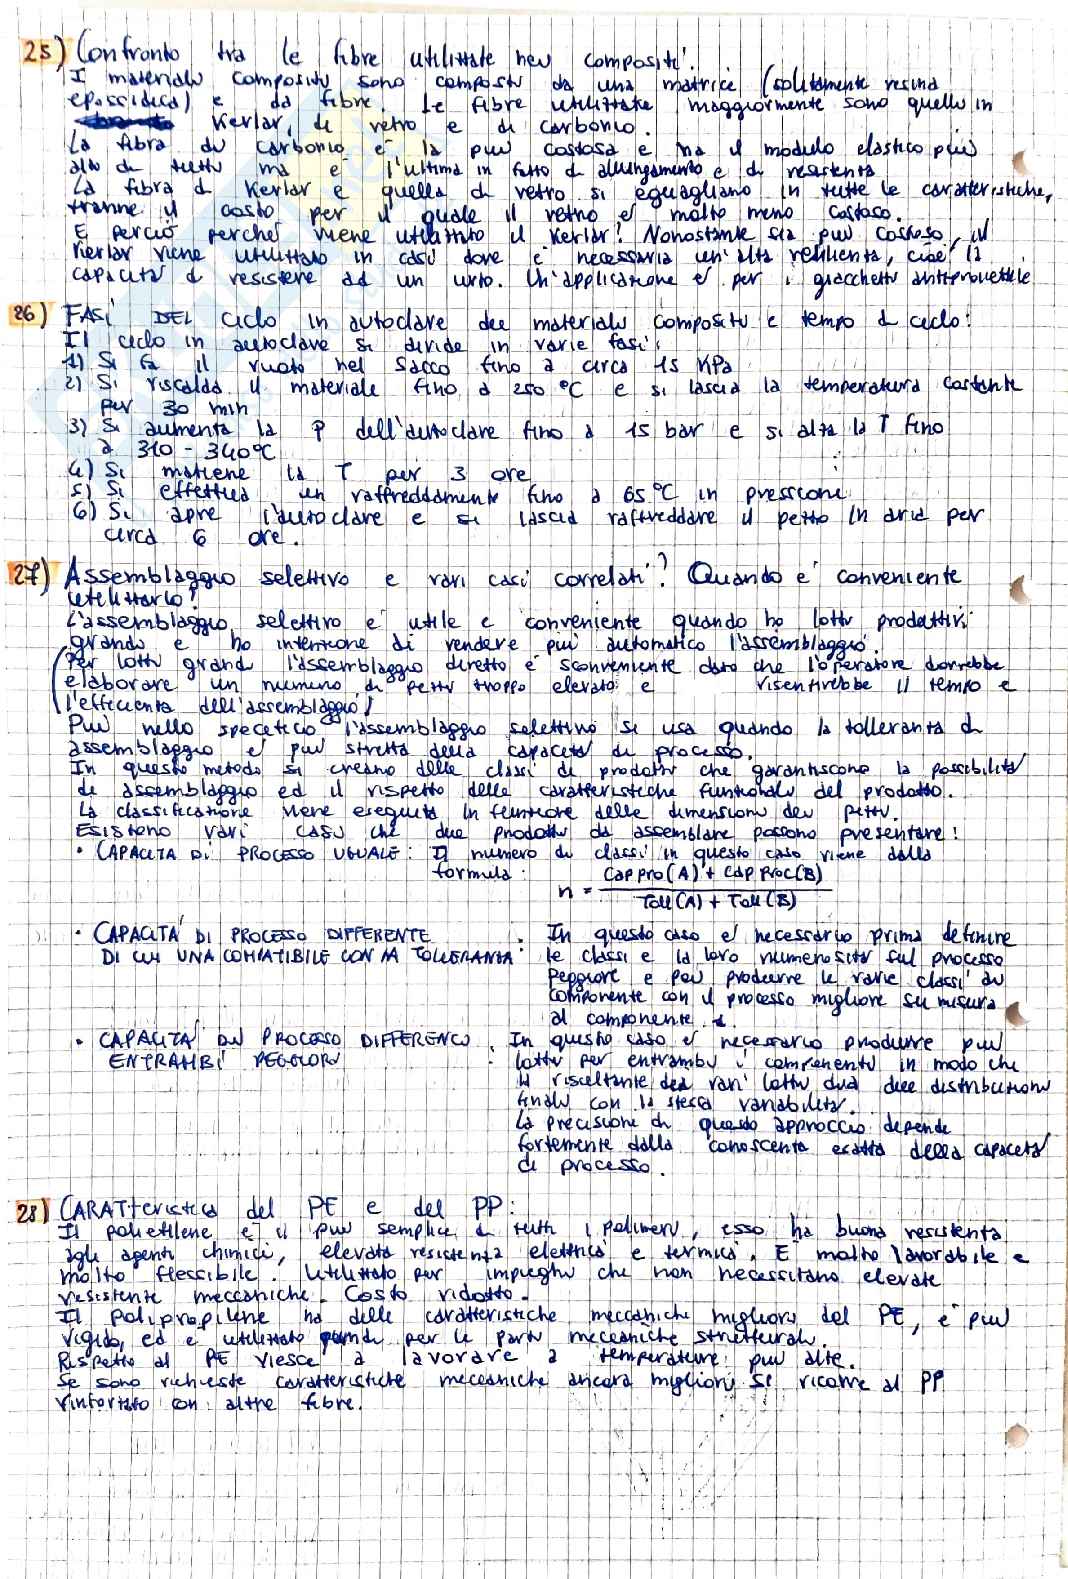 25) Confronto tra le fibre utilizzate nei compositi.
I materiali compositi sono composti da una matrice (solitamente resina
epossidica) e da fibre. Le fibre utilizzate maggiormente sono quelle in
Kevlar, di vetro e di carbonio.
La fibra di carbonio è la più costosa e ha il modulo elastico più
alto di tutti ma è l'ultima in fatto di allungamento e di resistenza
La fibra di Kevlar e quella di vetro si eguagliano in tutte le caratteristiche,
tranne il costo per il quale il vetro è molto meno costoso.
E perciò perché viene utilizzato il Kevlar? Nonostante sia più costoso, il
Kevlar viene utilizzato in casi dove è necessaria un'alta resilienza, cioè la
capacità di resistere ad un urto. Un'applicazione è per i giacchetti antiproiettile
26) FASI DEL ciclo in autoclave dei materiali compositi e tempo di ciclo:
Il ciclo in autoclave si divide in varie fasi:
1) Si fa il vuoto nel sacco fino a circa 15 KPa
2) Si riscalda il materiale fino a 250 °C e si lascia la temperatura costante
per 30 min
3) Si aumenta la P dell'autoclave fino a 15 bar e si alza la T fino
a 310 - 340°C
4) Si mantiene la T per 3 ore
5) Si effettua un raffreddamento fino a 65 °C in pressione
6) Si apre l'autoclave e si lascia raffreddare il pezzo in aria per
circa 6 ore.
27) Assemblaggio selettivo e vari casi correlati? Quando è conveniente
utilizzarlo?
L'assemblaggio selettivo è utile e conveniente quando ho lotti produttivi
grandi e ho intenzione di rendere più automatico l'assemblaggio.
(Per lotti grandi l'assemblaggio diretto è sconveniente dato che l'operatore dovrebbe
elaborare un numero di pezzi troppo elevato e risentirebbe il tempo e
l'efficienza dell'assemblaggio)
Più nello specifico l'assemblaggio selettivo si usa quando la tolleranza di
assemblaggio è più stretta della capacità di processo.
In questo metodo si creano delle classi di prodotti che garantiscono la possibilità
di assemblaggio ed il rispetto delle caratteristiche funzionali del prodotto.
La classificazione viene eseguita in funzione delle dimensioni dei pezzi.
Esistono vari casi che due prodotti da assemblare possono presentare:
• CAPACITÀ DI PROCESSO UGUALE: Il numero di classi in questo caso viene dalla
formula: n = Cap pro(A) + Cap Proc(B) / Toll(A) + Toll(B)
• CAPACITÀ DI PROCESSO DIFFERENTE : In questo caso è necessario prima definire
DI CUI UNA COMPATIBILE CON LA TOLLERANZA le classi e la loro numerosità sul processo
peggiore e poi produrre le varie classi di
componente con il processo migliore su misura
al componente 1.
• CAPACITÀ DI PROCESSO DIFFERENTI : In questo caso è necessario produrre più
ENTRAMBI PEGGIORI lotti per entrambi i componenti in modo che
la risultante dei vari lotti dia due distribuzioni
finali con la stessa variabilità.
La precisione di questo approccio dipende
fortemente dalla conoscenza esatta della capacità
di processo.
28) CARATteristica del PE e del PP:
Il polietilene è il più semplice di tutti i polimeri, esso ha buona resistenza
agli agenti chimici, elevata resistenza elettrica e termica. È molto lavorabile e
molto flessibile. Utilizzato per impieghi che non necessitano elevate
resistenze meccaniche. Costo ridotto.
Il polipropilene ha delle caratteristiche meccaniche migliori del PE, è più
rigido, ed è utilizzato per le parti meccaniche strutturali.
Rispetto al PE riesce a lavorare a temperature più alte.
Se sono richieste caratteristiche meccaniche ancora migliori si ricorre al PP
rinforzato con altre fibre.